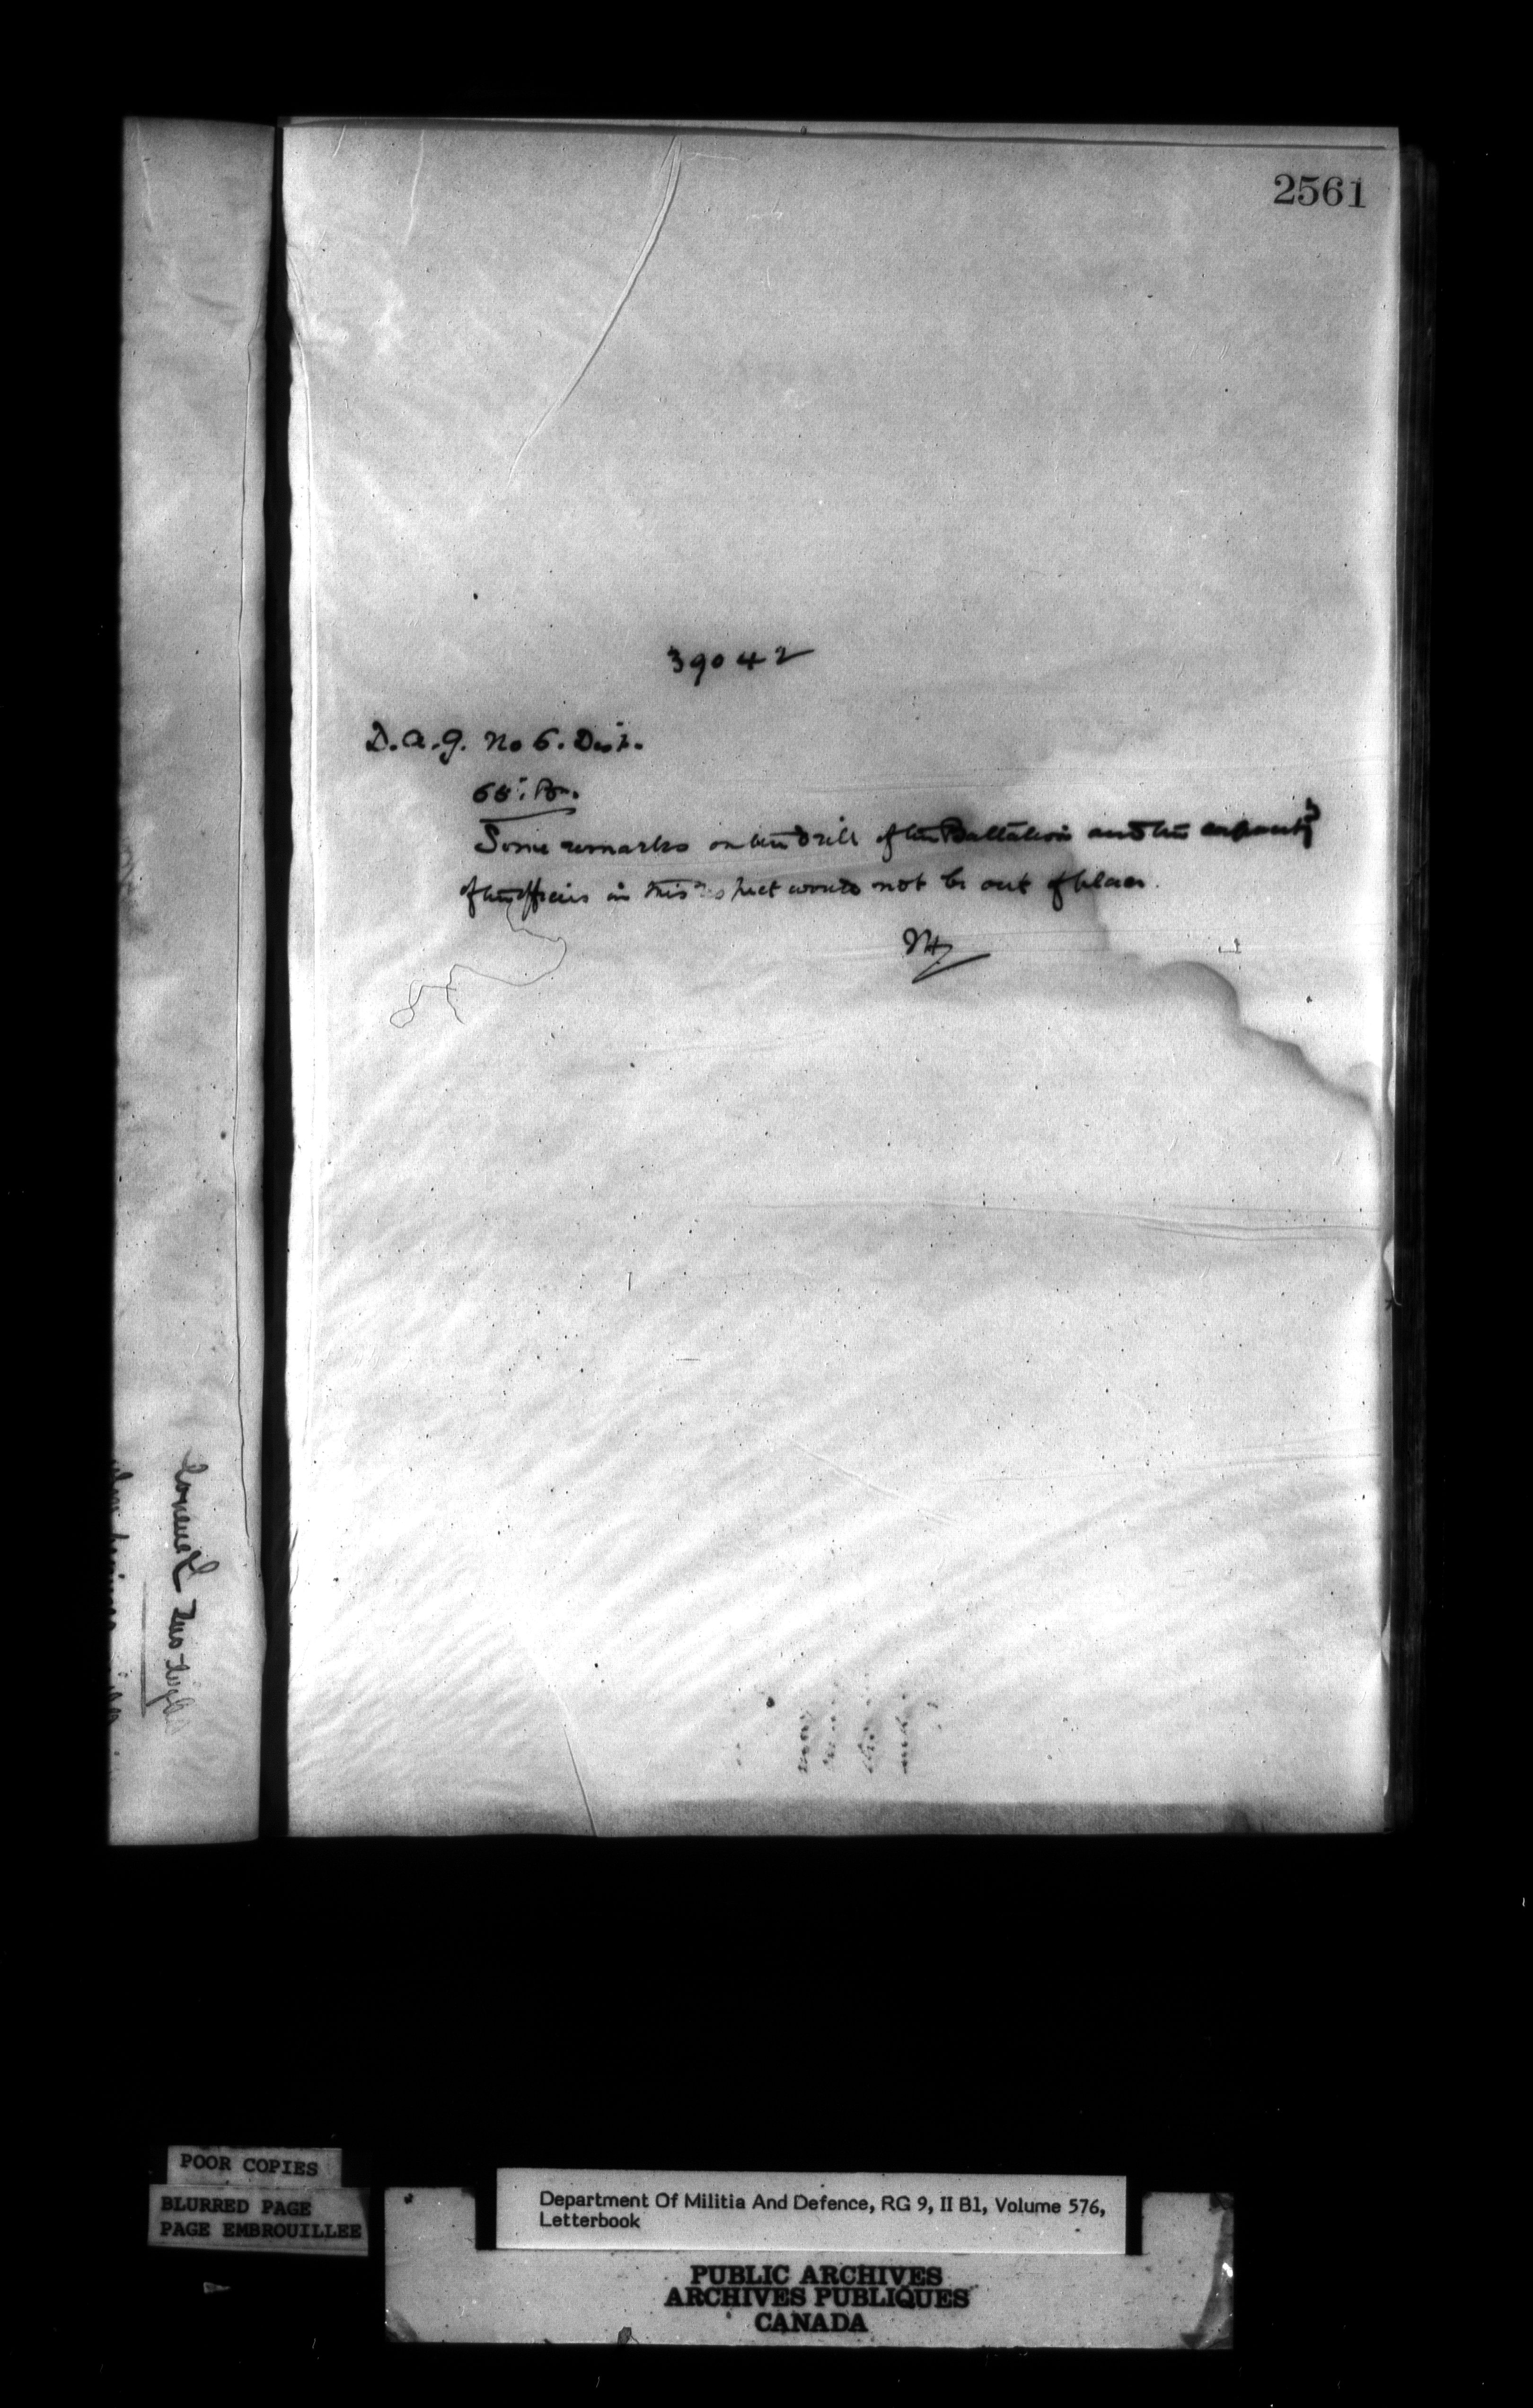 2561
39042
D.A.G. No 6. Dist.
65: Bn.
Some remarks on the drill of the Battalion and the capacity
of the officers in this respect would not be out of place.
POOR COPIES
BLURRED PAGE
PAGE EMBROUILLEE
Department Of Militia And Defence, RG 9, II B1, Volume 576,
Letterbook
PUBLIC ARCHIVES
ARCHIVES PUBLIQUES
CANADA